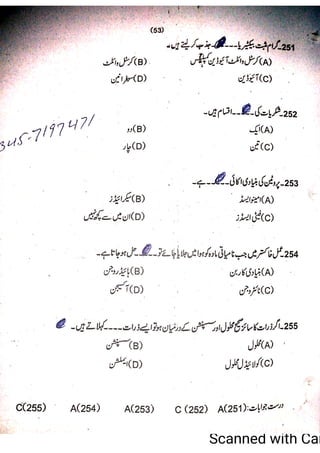 (53)
251۔ گرام مثبت بیکٹیریا۔۔۔۔ جذب کر لیتے ہیں۔
(A) کرسٹل وائلٹ آئیوڈین کمپلیکس (B) کرسٹل وائلٹ
(C) آئیوڈین (D) سفرانین
252۔ شکریات کی۔۔۔۔ اقسام ہیں۔
(A) ایک (B) دو
(C) تین (D) چار
345-7197471
253۔ پروٹین کی بنیادی اکائی۔۔۔۔ ہے۔
(A) امینو ایسڈ (B) سیکرائیڈز
(C) فیٹی ایسڈز (D) ان میں سے کچھ نہیں
254۔ عمل خاکستر میں جب نامیاتی مادہ کو ہوا میں جلایا جائے تو۔۔۔۔ حل ہو جاتا ہے۔
(A) بنیادی کاربن (B) ہائیڈروجن
(C) نائٹروجن (D) آکسیجن
255۔ اگر ذرات کا سائز صحیح محلول اور سسپنشن کے درمیان ہو تو ایسے ذرات۔۔۔۔ کہلاتے ہیں۔
(A) محلول (B) سسپنشن
(C) کولائیڈل محلول (D) ایملشن
درست جوابات: A(251) C (252) A(253) A(254) C(255)
Scanned with Ca